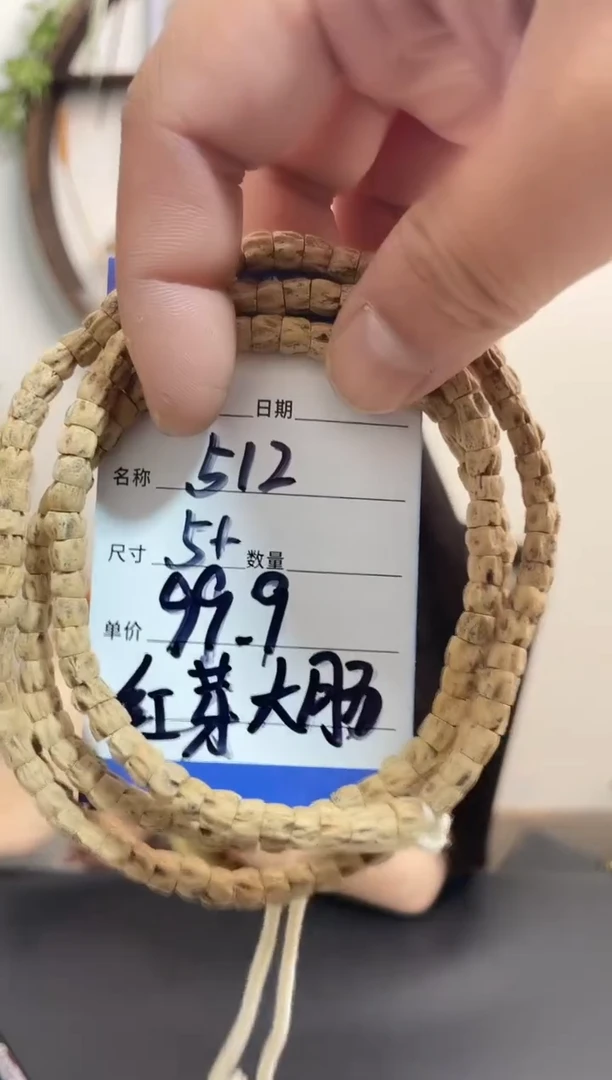 日期
名称 512
尺寸 5+ 数量
单价 99.9
红芽大肠